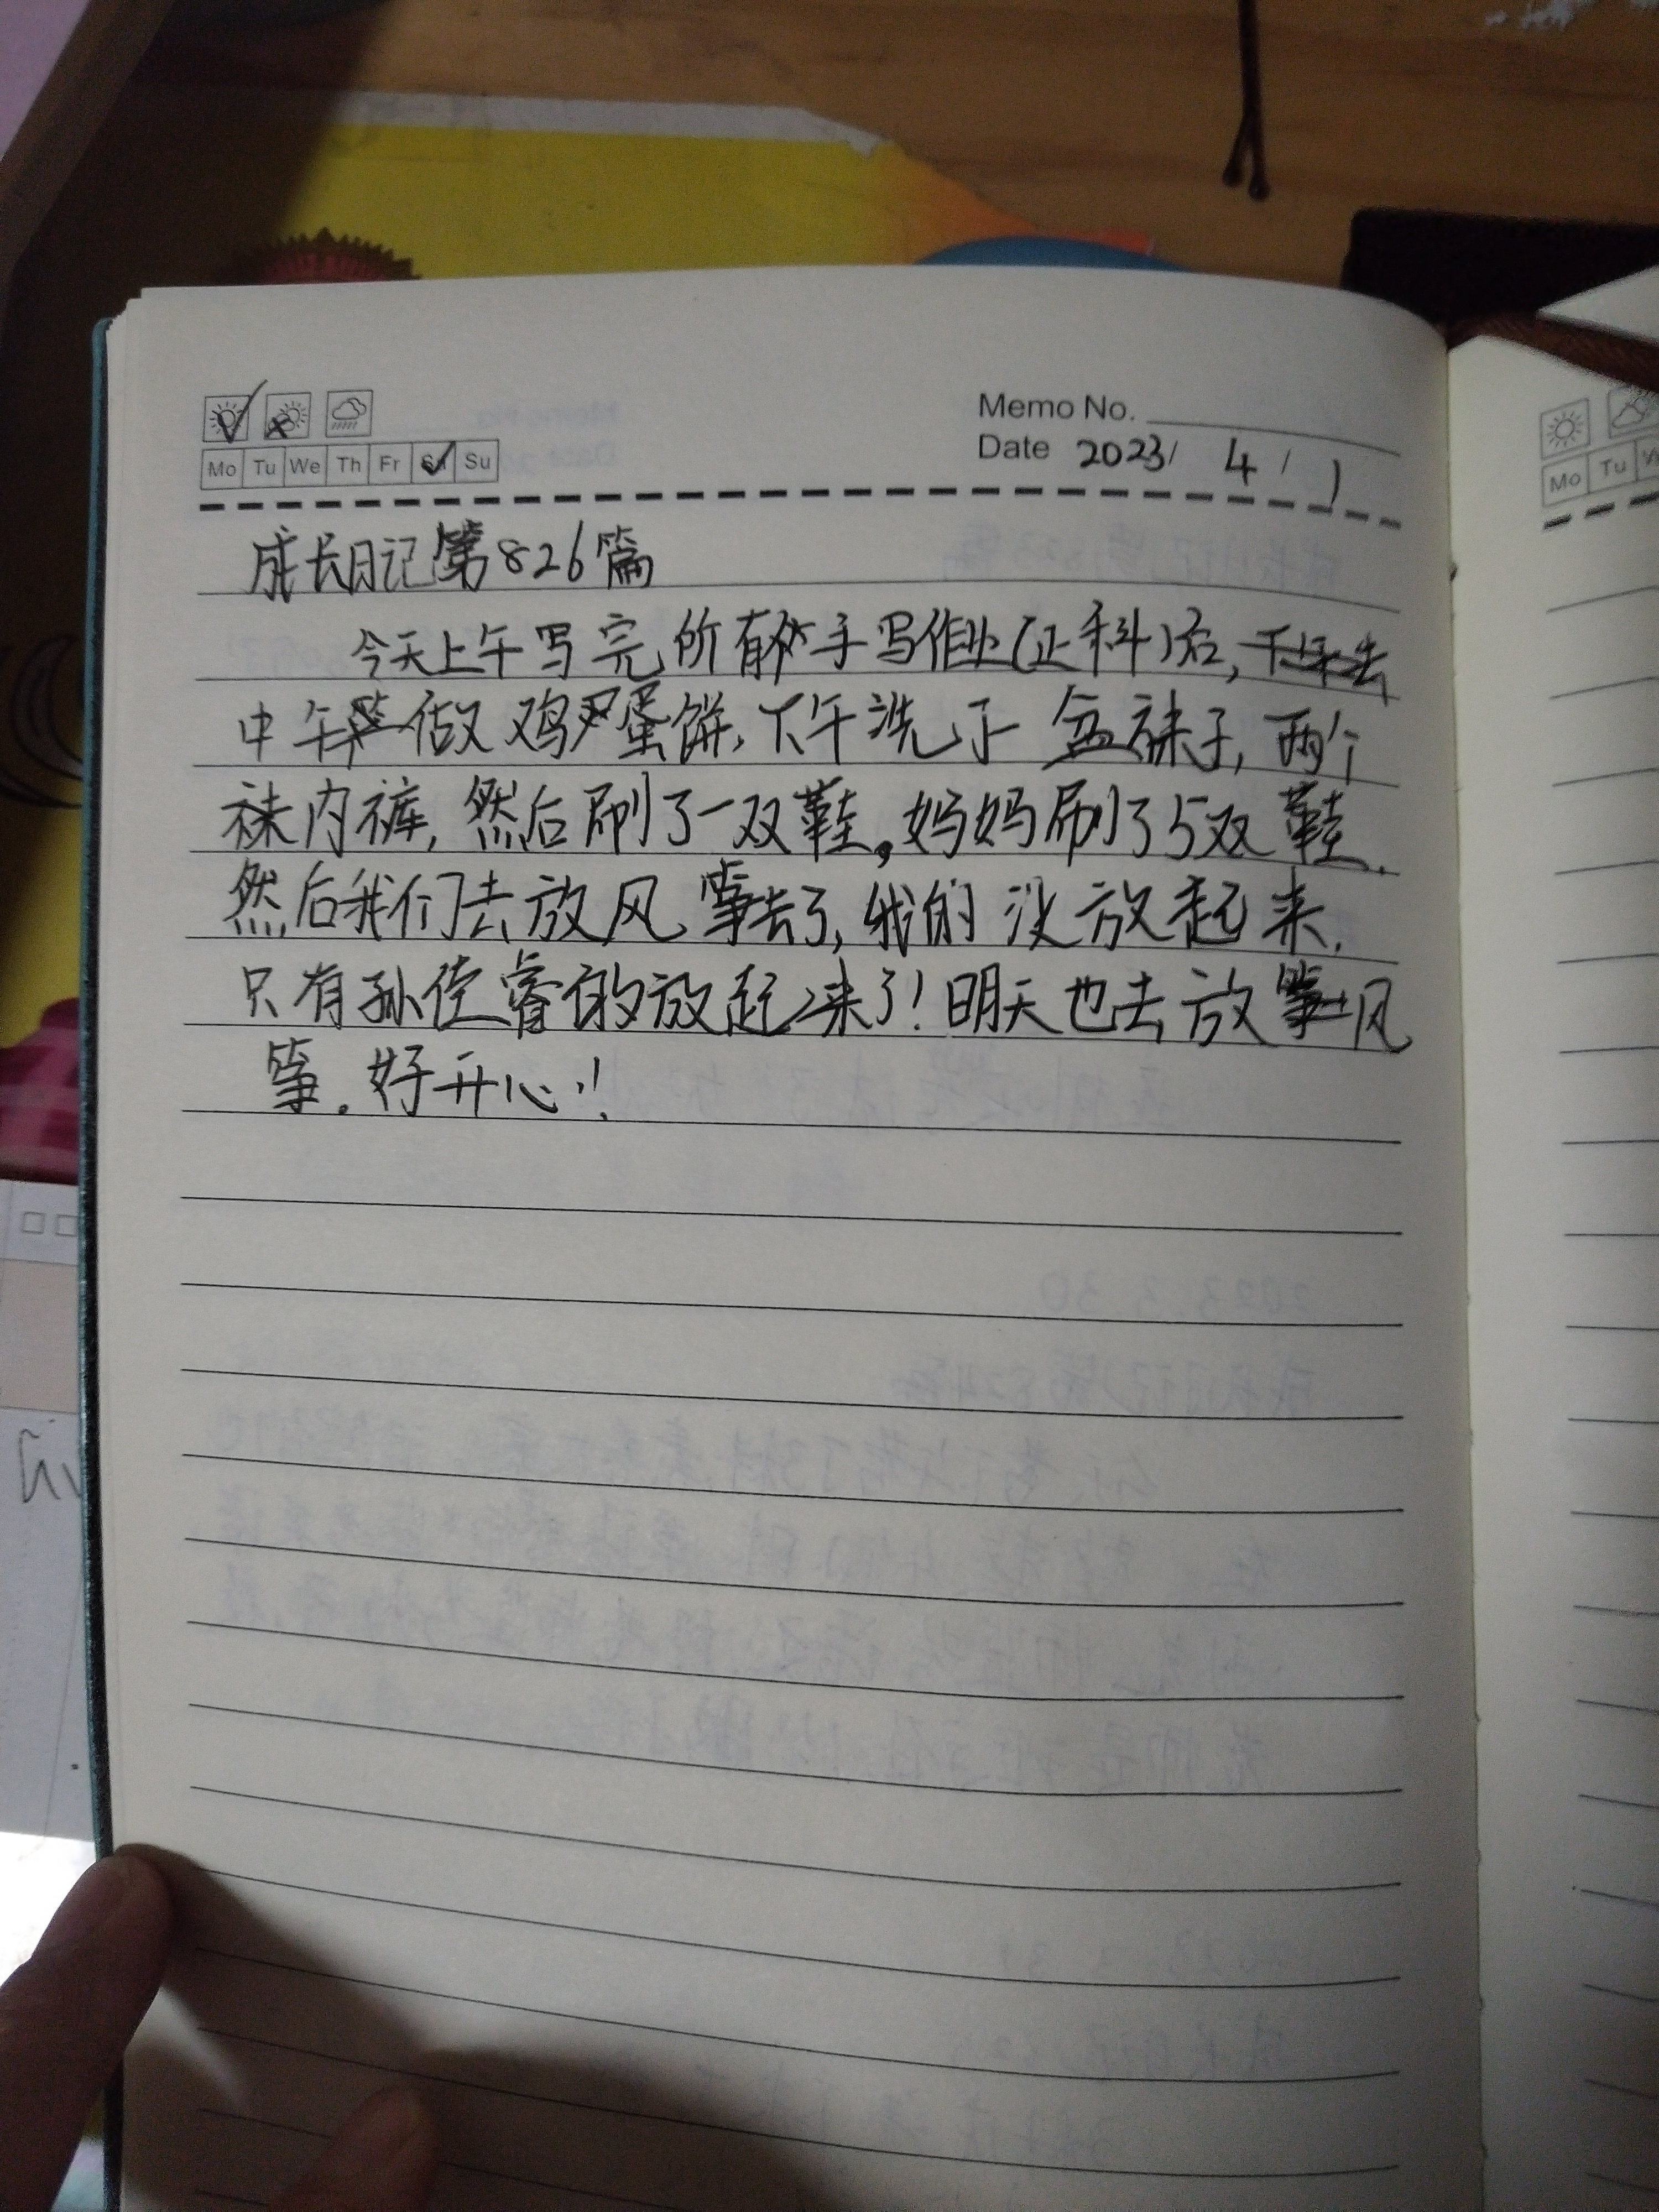 Memo No.
Date 2023/ 4 / 1
Mo Tu We Th Fr Sa Su
成长日记第826篇
今天上午写完所有手写作业(正科)后,
中午做鸡蛋饼,下午洗了一盆袜子,两个
内裤,然后刷了一双鞋。妈妈刷了5双鞋.
然后我们去放风筝去了,我的没放起来.
只有孙佳睿的放起来了!明天也去放风
筝。好开心!!
Mo Tu